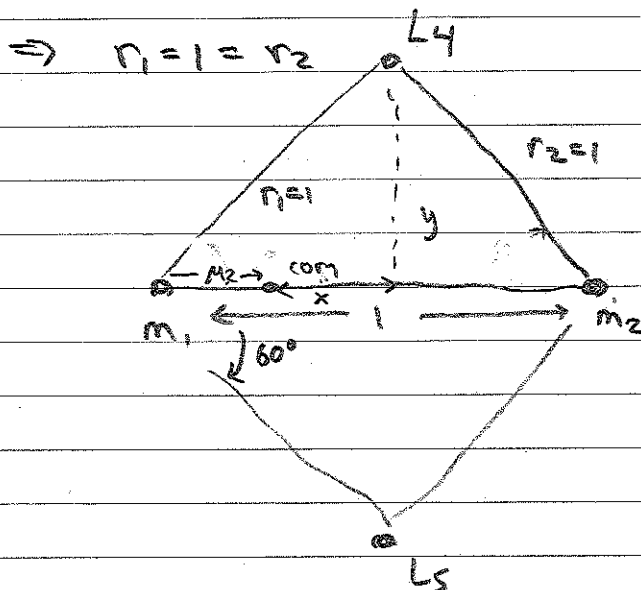 ⇒ r₁ = 1 = r₂
L4
r₁=1
r₂=1
y
μ₂ → com
x
m₁
1
m₂
60°
L5